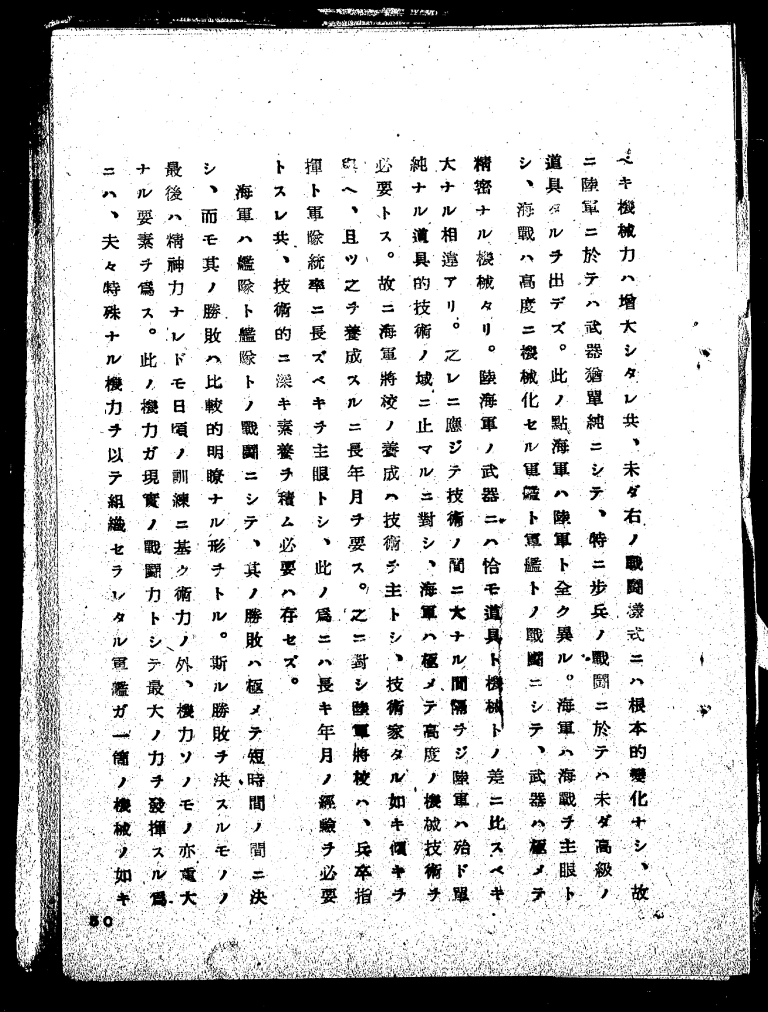 ベキ機械力ハ增大シタレ共、未ダ右ノ戰鬪樣式ニハ根本的變化ナシ、故
ニ陸軍ニ於テハ武器猶單純ニシテ、特ニ步兵ノ戰鬪ニ於テハ未ダ高級ノ
道具タルヲ出デズ。此ノ點海軍ハ陸軍ト全ク異ル。海軍ハ海戰ヲ主眼ト
シ、海戰ハ高度ニ機械化セル軍艦ト軍艦トノ戰鬪ニシテ、武器ハ極メテ
精密ナル機械タリ。陸海軍ノ武器ニハ恰モ道具ト機械トノ差ニ比スベキ
大ナル相違アリ。之レニ應ジテ技術ノ間ニ大ナル間隔ヲジ陸軍ハ殆ド單
純ナル道具的技術ノ域ニ止マルニ對シ、海軍ハ極メテ高度ノ機械技術ヲ
必要トス。故ニ海軍將校ノ養成ハ技術ヲ主トシ、技術家タル如キ傾キヲ
與ヘ、且ツ之ヲ養成スルニ長年月ヲ要ス。之ニ對シ陸軍將校ハ、兵卒指
揮ト軍隊統率ニ長ズベキヲ主眼トシ、此ノ爲ニハ長キ年月ノ經驗ヲ必要
トスレ共、技術的ニ深キ素養ヲ積ム必要ハ存セズ。
海軍ハ艦隊ト艦隊トノ戰鬪ニシテ、其ノ勝敗ハ極メテ短時間ノ間ニ決
シ、而モ其ノ勝敗ハ比較的明瞭ナル形ヲトル。斯ル勝敗ヲ決スルモノノ
最後ハ精神力ナレドモ日頃ノ訓練ニ基ク術力ノ外、機力ソノモノ亦重大
ナル要素ヲ爲ス。此ノ機力ガ現實ノ戰鬪力トシテ最大ノ力ヲ發揮スル爲
ニハ、夫々特殊ナル機力ヲ以テ組織セラレタル軍艦ガ一箇ノ機械ノ如キ
50